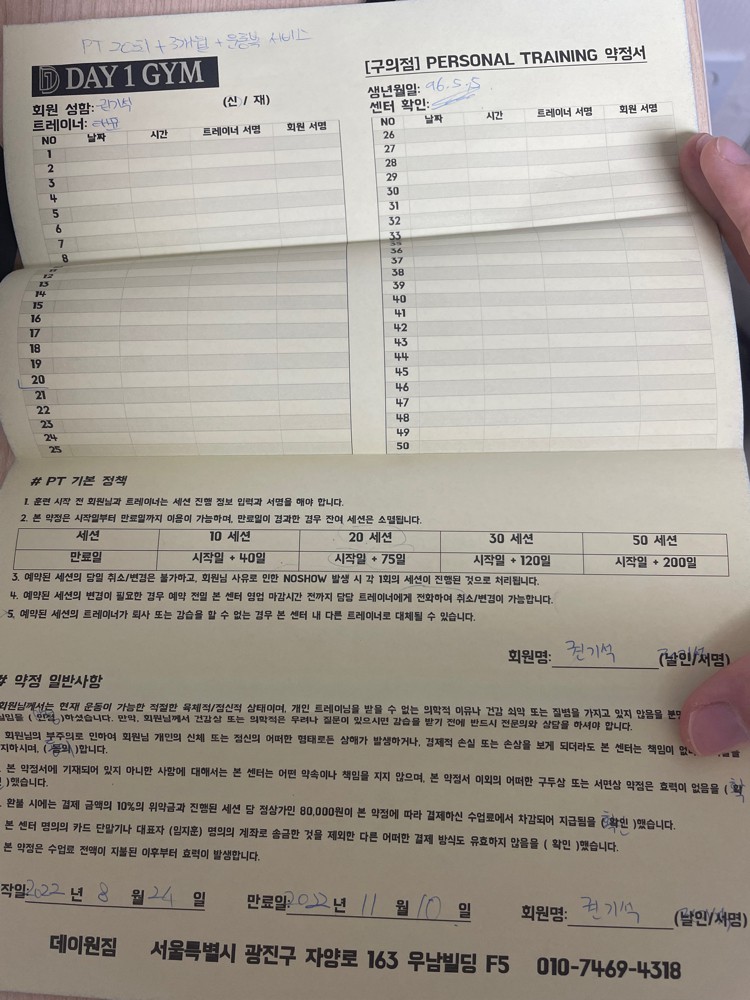 PT 20회 + 3개월 + 운동복 서비스
DAY 1 GYM
[구의점] PERSONAL TRAINING 약정서
회원 성함: 권기석 (신 / 재)
생년월일: 96.5.5
트레이너:
센터 확인:
NO 날짜 시간 트레이너 서명 회원 서명
1
2
3
4
5
6
7
8
12
13
14
15
16
17
18
19
20
21
22
23
24
25
NO 날짜 시간 트레이너 서명 회원 서명
26
27
28
29
30
31
32
33
35
36
37
38
39
40
41
42
43
44
45
46
47
48
49
50
# PT 기본 정책
1. 훈련 시작 전 회원님과 트레이너는 세션 진행 정보 입력과 서명을 해야 합니다.
2. 본 약정은 시작일부터 만료일까지 이용이 가능하며, 만료일이 경과한 경우 잔여 세션은 소멸됩니다.
세션 10 세션 20 세션 30 세션 50 세션
만료일 시작일 + 40일 시작일 + 75일 시작일 + 120일 시작일 + 200일
3. 예약된 세션의 당일 취소/변경은 불가하고, 회원님 사유로 인한 NOSHOW 발생 시 각 1회의 세션이 진행된 것으로 처리됩니다.
4. 예약된 세션의 변경이 필요한 경우 예약 전일 본 센터 영업 마감시간 전까지 담당 트레이너에게 전화하여 취소/변경이 가능합니다.
5. 예약된 세션의 트레이너가 퇴사 또는 강습을 할 수 없는 경우 본 센터 내 다른 트레이너로 대체될 수 있습니다.
회원명: 권기석 (날인/서명)
# 약정 일반사항
회원님께서는 현재 운동이 가능한 적절한 육체적/정신적 상태이며, 개인 트레이닝을 받을 수 없는 의학적 이유나 건강 쇠약 또는 질병을 가지고 있지 않음을
( 인정 )하셨습니다. 만약, 회원님께서 건강상 또는 의학적은 우려나 질문이 있으시면 강습을 받기 전에 반드시 전문의와 상담을 하셔야 합니다.
회원님의 부주의로 인하여 회원님 개인의 신체 또는 정신의 어떠한 형태로든 상해가 발생하거나, 경제적 손실 또는 손상을 보게 되더라도 본 센터는 책임이
지하시며, ( 동의 )합니다.
본 약정서에 기재되어 있지 아니한 사항에 대해서는 본 센터는 어떤 약속이나 책임을 지지 않으며, 본 약정서 이외의 어떠한 구두상 또는 서면상 약정은 효력이 없음을 ( 확
)했습니다.
환불 시에는 결제 금액의 10%의 위약금과 진행된 세션 당 정상가인 80,000원이 본 약정에 따라 결제하신 수업료에서 차감되어 지급됨을 ( 확인 )했습니다.
본 센터 명의의 카드 단말기나 대표자 (임지훈) 명의의 계좌로 송금한 것을 제외한 다른 어떠한 결제 방식도 유효하지 않음을 ( 확인 )했습니다.
본 약정은 수업료 전액이 지불된 이후부터 효력이 발생합니다.
작일: 2022 년 8 월 24 일 만료일: 2022 년 11 월 10 일 회원명: 권기석 (날인/서명)
데이원짐 서울특별시 광진구 자양로 163 우남빌딩 F5 010-7469-4318